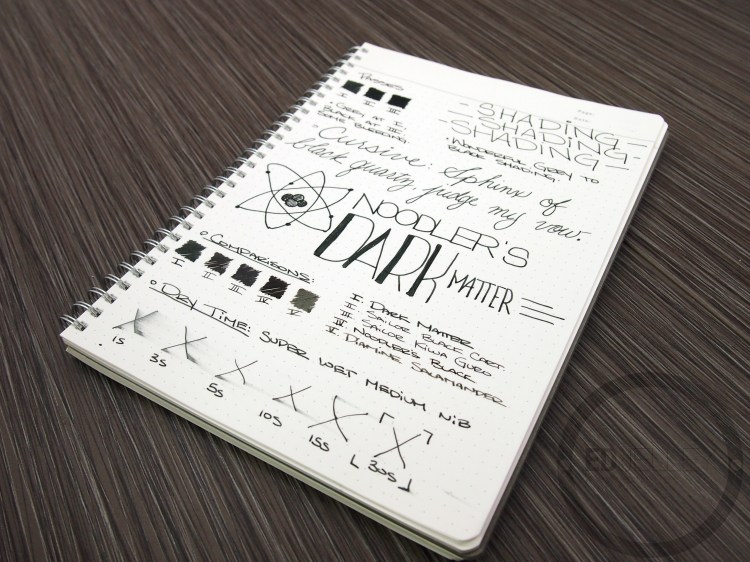 Passes
I II III
Grey at I.
Black at III.
Some bleeding.
- SHADING -
- SHADING -
SHADING -
Wonderful grey to
black shading.
Cursive: Sphinx of
black quartz, judge my vow.
NOODLER'S
DARK MATTER
Comparisons:
I II III IV V
I: Dark Matter
II: Sailor Black Cart.
III: Sailor Kiwa Guro
IV: Noodler's Black
V: Diamine Salamander
Dry Time: Super wet medium nib
1s 3s 5s 10s 15s 30s